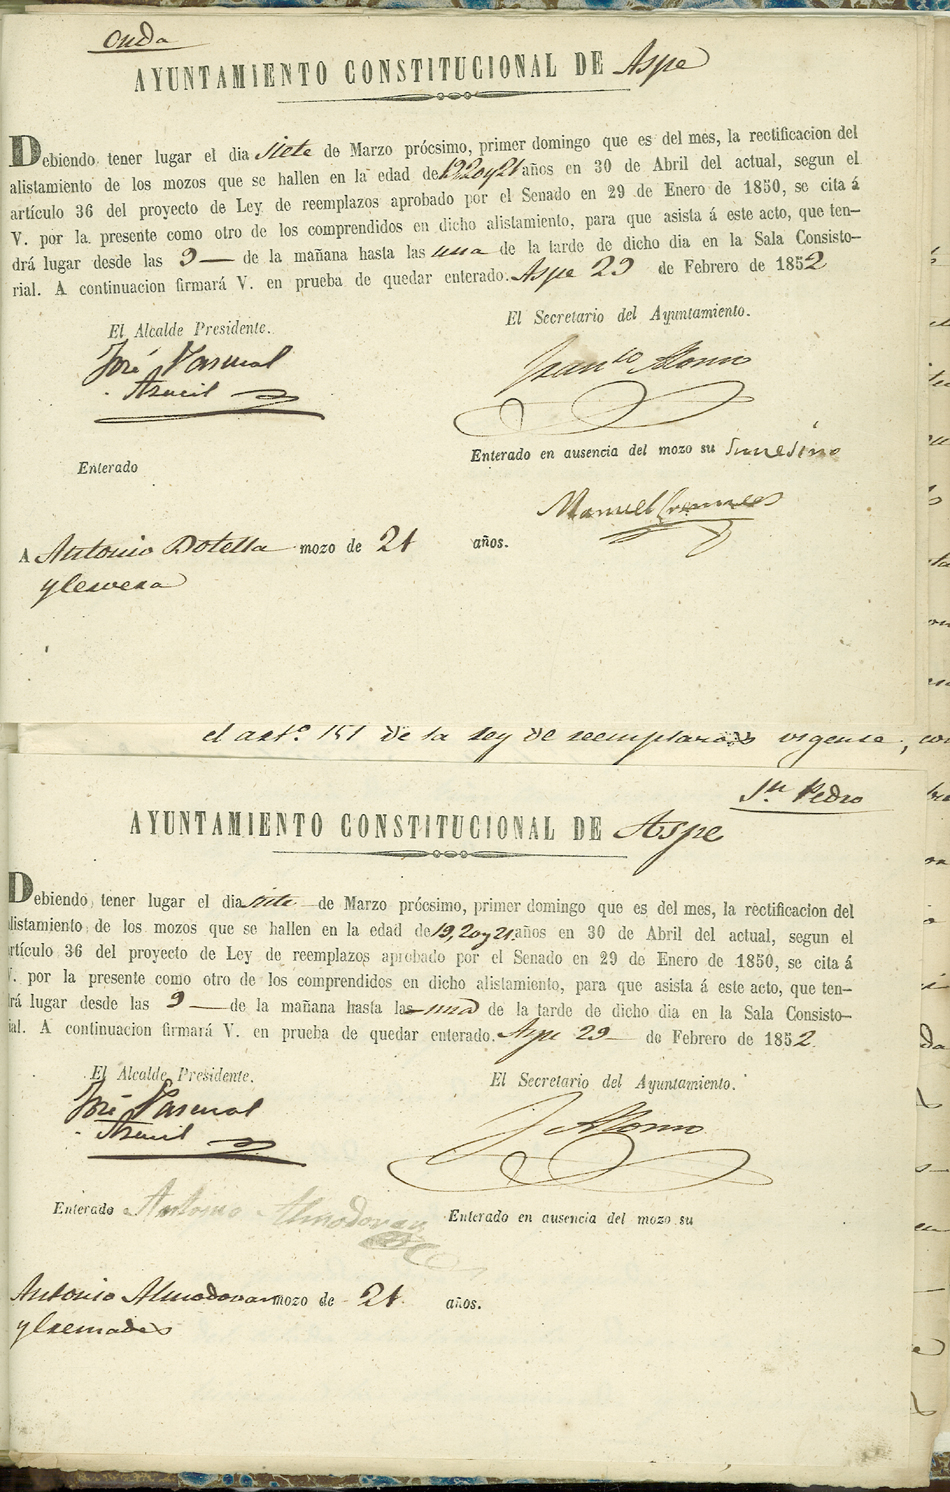 Onda
AYUNTAMIENTO CONSTITUCIONAL DE Aspe
Debiendo tener lugar el dia siete de Marzo prócsimo, primer domingo que es del mes, la rectificacion del
alistamiento de los mozos que se hallen en la edad de 19 20 y 21 años en 30 de Abril del actual, segun el
artículo 36 del proyecto de Ley de reemplazos aprobado por el Senado en 29 de Enero de 1850, se cita á
V. por la presente como otro de los comprendidos en dicho alistamiento, para que asista á este acto, que ten-
drá lugar desde las 9 — de la mañana hasta las una de la tarde de dicho dia en la Sala Consisto-
rial. A continuacion firmará V. en prueba de quedar enterado. Aspe 29 de Febrero de 1852
El Alcalde Presidente.
El Secretario del Ayuntamiento.
José Pascual
Alonso
Enterado en ausencia del mozo su
Enterado
Manuel
A Antonio Botella mozo de 21 años.
y Cervera
el artº. 151 de la ley de reemplazos vigente,
Sn. Pedro
AYUNTAMIENTO CONSTITUCIONAL DE Aspe
Debiendo tener lugar el dia siete de Marzo prócsimo, primer domingo que es del mes, la rectificacion del
alistamiento de los mozos que se hallen en la edad de 19, 20 y 21 años en 30 de Abril del actual, segun el
rtículo 36 del proyecto de Ley de reemplazos aprobado por el Senado en 29 de Enero de 1850, se cita á
V. por la presente como otro de los comprendidos en dicho alistamiento, para que asista á este acto, que ten-
rá lugar desde las 9 — de la mañana hasta las una de la tarde de dicho dia en la Sala Consisto-
ial. A continuacion firmará V. en prueba de quedar enterado. Aspe 29 de Febrero de 1852.
El Alcalde Presidente.
El Secretario del Ayuntamiento.
José Pascual
J Alonso
Enterado Antonio Almodovar
Enterado en ausencia del mozo su
Antonio Almodovar mozo de 21 años.
y Cremades